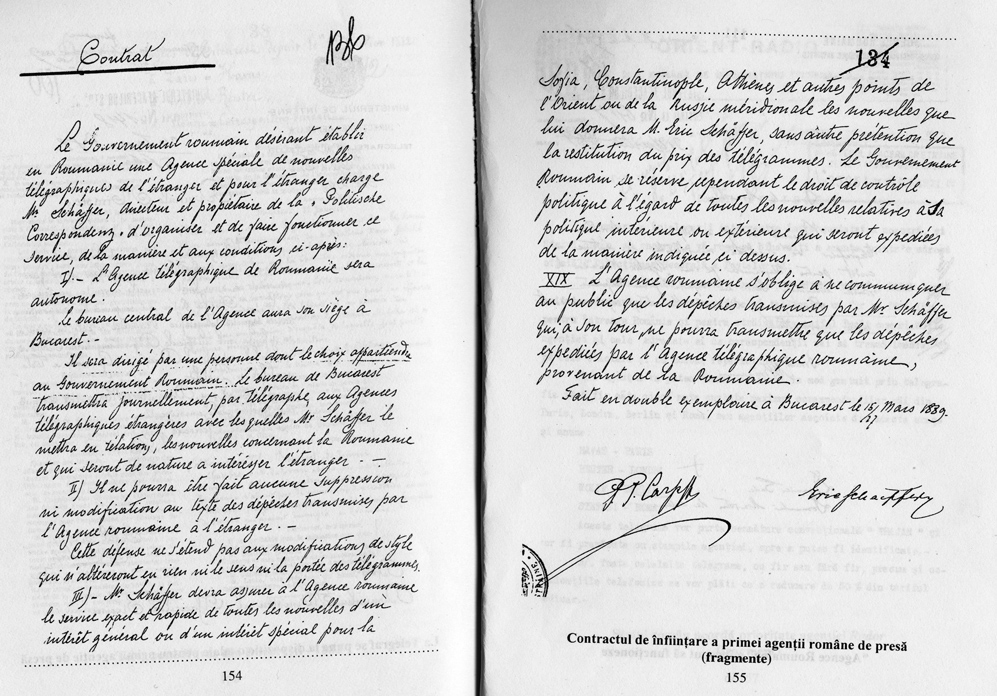 Contrat
Le Gouvernement roumain désirant établir
en Roumanie une Agence spéciale de nouvelles
télégraphiques de l'étranger et pour l'étranger charge
Mr. Schäffer, directeur et propriétaire de la "Politische
Correspondenz" d'organiser et de faire fonctionner ce
service, de la manière et aux conditions ci-après:
I).- L'Agence télégraphique de Roumanie sera
autonome.
Le bureau central de l'Agence aura son siège à
Bucarest.-
Il sera dirigé par une personne dont le choix appartiendra
au Gouvernement Roumain. Le bureau de Bucarest
transmettra journellement, par télégraphe, aux Agences
télégraphiques étrangères avec lesquelles Mr. Schäffer le
mettra en relations, les nouvelles concernant la Roumanie
et qui seront de nature a intéresser l'étranger. -
II) Il ne pourra être fait aucune suppression
ni modification au texte des dépêches transmises par
l'Agence roumaine à l'étranger. -
Cette défense ne s'étend pas aux modifications de style
qui n'altéreront en rien ni le sens ni la portée des télégrammes.
III)- Mr. Schäffer devra assurer à l'Agence roumaine
le service exact et rapide de toutes les nouvelles d'un
intérêt général ou d'un intérêt spécial pour la
154
134
Sofia, Constantinople, Athènes et autres points de
l'Orient ou de la Russie méridionale les nouvelles que
lui donnera M. Eric Schäffer, sans autre prétention que
la restitution du prix des télégrammes. Le Gouvernement
Roumain se réserve cependant le droit de contrôle
politique à l'égard de toutes les nouvelles relatives à sa
politique intérieure ou extérieure qui seront expediées
de la manière indiquée ci dessus.
XIX L'Agence roumaine s'oblige à ne communiquer
au public que les dépêches transmises par Mr. Schäffer
qui, à son tour, ne pourra transmettre que les dépêches
expediés par l'Agence télégraphique roumaine,
provenant de la Roumanie.
Fait en double exemplaire à Bucarest le 15/27 Mars 1889.
P.P. Carp
Contractul de înființare a primei agenții române de presă
(fragmente)
155